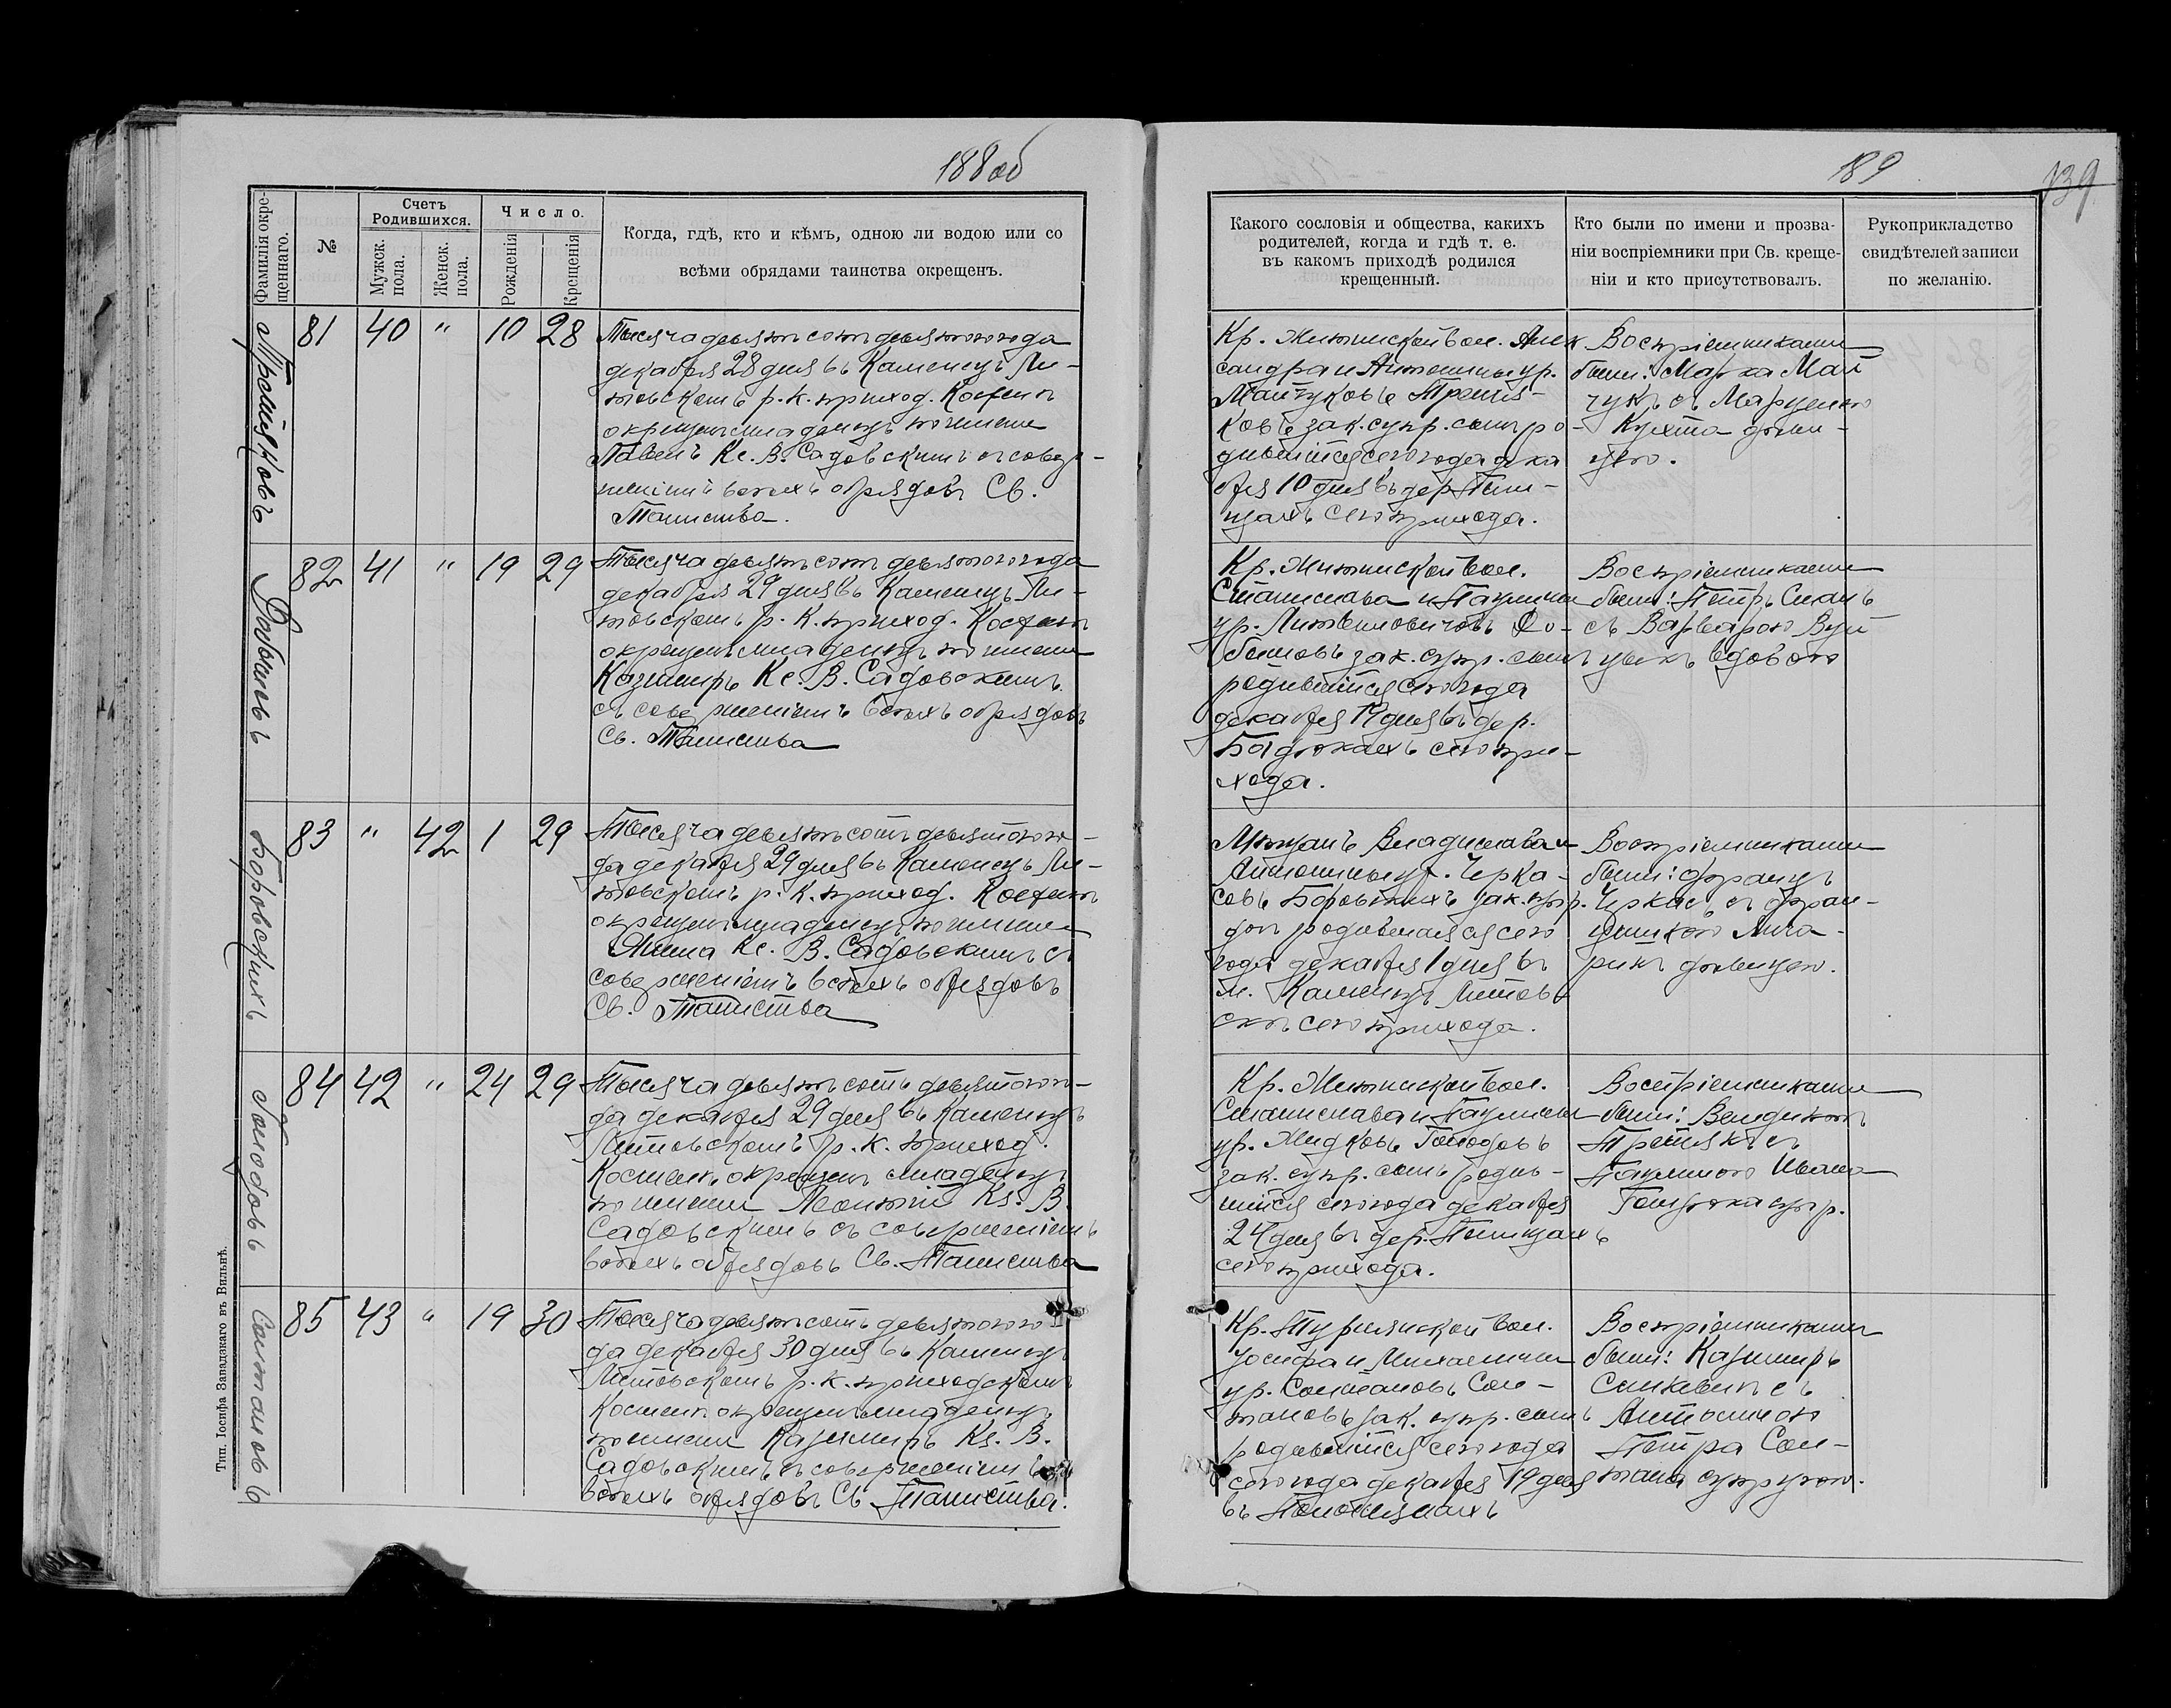 188 об
Фамилія окре-
щеннаго.
№
Счетъ
Родившихся.
Мужск.
пола.
Женск.
пола.
Число.
Рожденія
Крещенія
Когда, гдѣ, кто и кѣмъ, одною ли водою или со
всѣми обрядами таинства окрещенъ.
Третяковъ
81 40 " 10 28
Тысяча девятсот девятого года
декабря 28 дня въ Каменцъ Ли-
товскомъ р. к. приход. Костелѣ
окрещенъ младенецъ по имени
Павелъ Кс. В. Садовскимъ съ совер-
шеніемъ всѣхъ обрядовъ Св.
Таинства.
82 41 " 19 29
Тысяча девятсот девятого года
декабря 29 дня въ Каменцъ Ли-
товскомъ р. к. приход. Костелѣ
окрещенъ младенецъ по имени
Казимиръ Кс. В. Садовскимъ
съ совершеніемъ всѣхъ обрядовъ
Св. Таинства
Боровскихъ
83 " 42 1 29
Тысяча девятсотъ девятого го-
да декабря 29 дня въ Каменцъ Ли-
товскомъ р. к. приход. Костелѣ
окрещенъ младенецъ по имени
Янина Кс. В. Садовскимъ съ
совершеніемъ всѣхъ обрядовъ
Св. Таинства
Голодовъ
84 42 " 24 29
Тысяча девятсотъ девятого го-
да декабря 29 дня въ Каменцъ
Литовскомъ р. к. приход.
Костелѣ окрещенъ младенецъ
по имени Леонтій Кс. В.
Садовскимъ съ совершеніемъ
всѣхъ обрядовъ Св. Таинства
Солтановъ
85 43 " 19 30
Тысяча девятсотъ девятого го-
да декабря 30 дня въ Каменцъ
Литовскомъ р. к. приходскомъ
Костелѣ окрещенъ младенецъ
по имени Казимиръ Кс. В.
Садовскимъ съ совершеніемъ
всѣхъ обрядовъ Св. Таинства.
Тип. Іосифа Завадзкаго въ Вильнѣ.
189
139
Какого сословія и общества, какихъ
родителей, когда и гдѣ т. е.
въ какомъ приходѣ родился
крещенный.
Кто были по имени и прозва-
ніи воспріемники при Св. креще-
ніи и кто присутствовалъ.
Рукоприкладство
свидѣтелей записи
по желанію.
Кр. вол. Алек
сандра и Антонины ур.
Майчуковъ Третя-
ковъ зак. супр. сынъ ро-
дившійся сего года дека
бря 10 дня въ дер.
сего прихода.
Воспріемниками
были: Марка Май
чукъ съ
дѣви-
цею.
Кр. вол.
Станислава и Паулины
ур. Литвиновичовъ
зак. супр. сынъ
родившійся сего года
декабря 19 дня въ дер.
сего при-
хода.
Воспріемниками
были: Петръ
съ Варварою Вуй
цикъ вдовою
Мѣщанъ Владислава и
Антонины ур. Черка-
совъ Боровскихъ зак. супр.
дочь родившаяся сего
года декабря 1 дня въ
м. Каменцъ Литовъ
скѣ сего прихода.
Воспріемниками
были: Францъ
Черкасъ съ Фран-
цишкою
дѣвицею.
Кр. вол.
Станислава и Паулины
ур. Голодовъ
зак. супр. сынъ родив-
шійся сего года декабря
24 дня въ дер.
сего прихода.
Воспріемниками
были: Венедиктъ
Третякъ съ
Паулиною Ивана
супр.
Кр. вол.
Іосифа и Михалины
ур. Солтановъ Сол-
тановъ зак. супр. сынъ
родившійся сего года
сего года декабря 19 дня
въ
Воспріемниками
были: Казимиръ
Синкевичъ съ
Антониною
Петра Сол-
тана супругою.